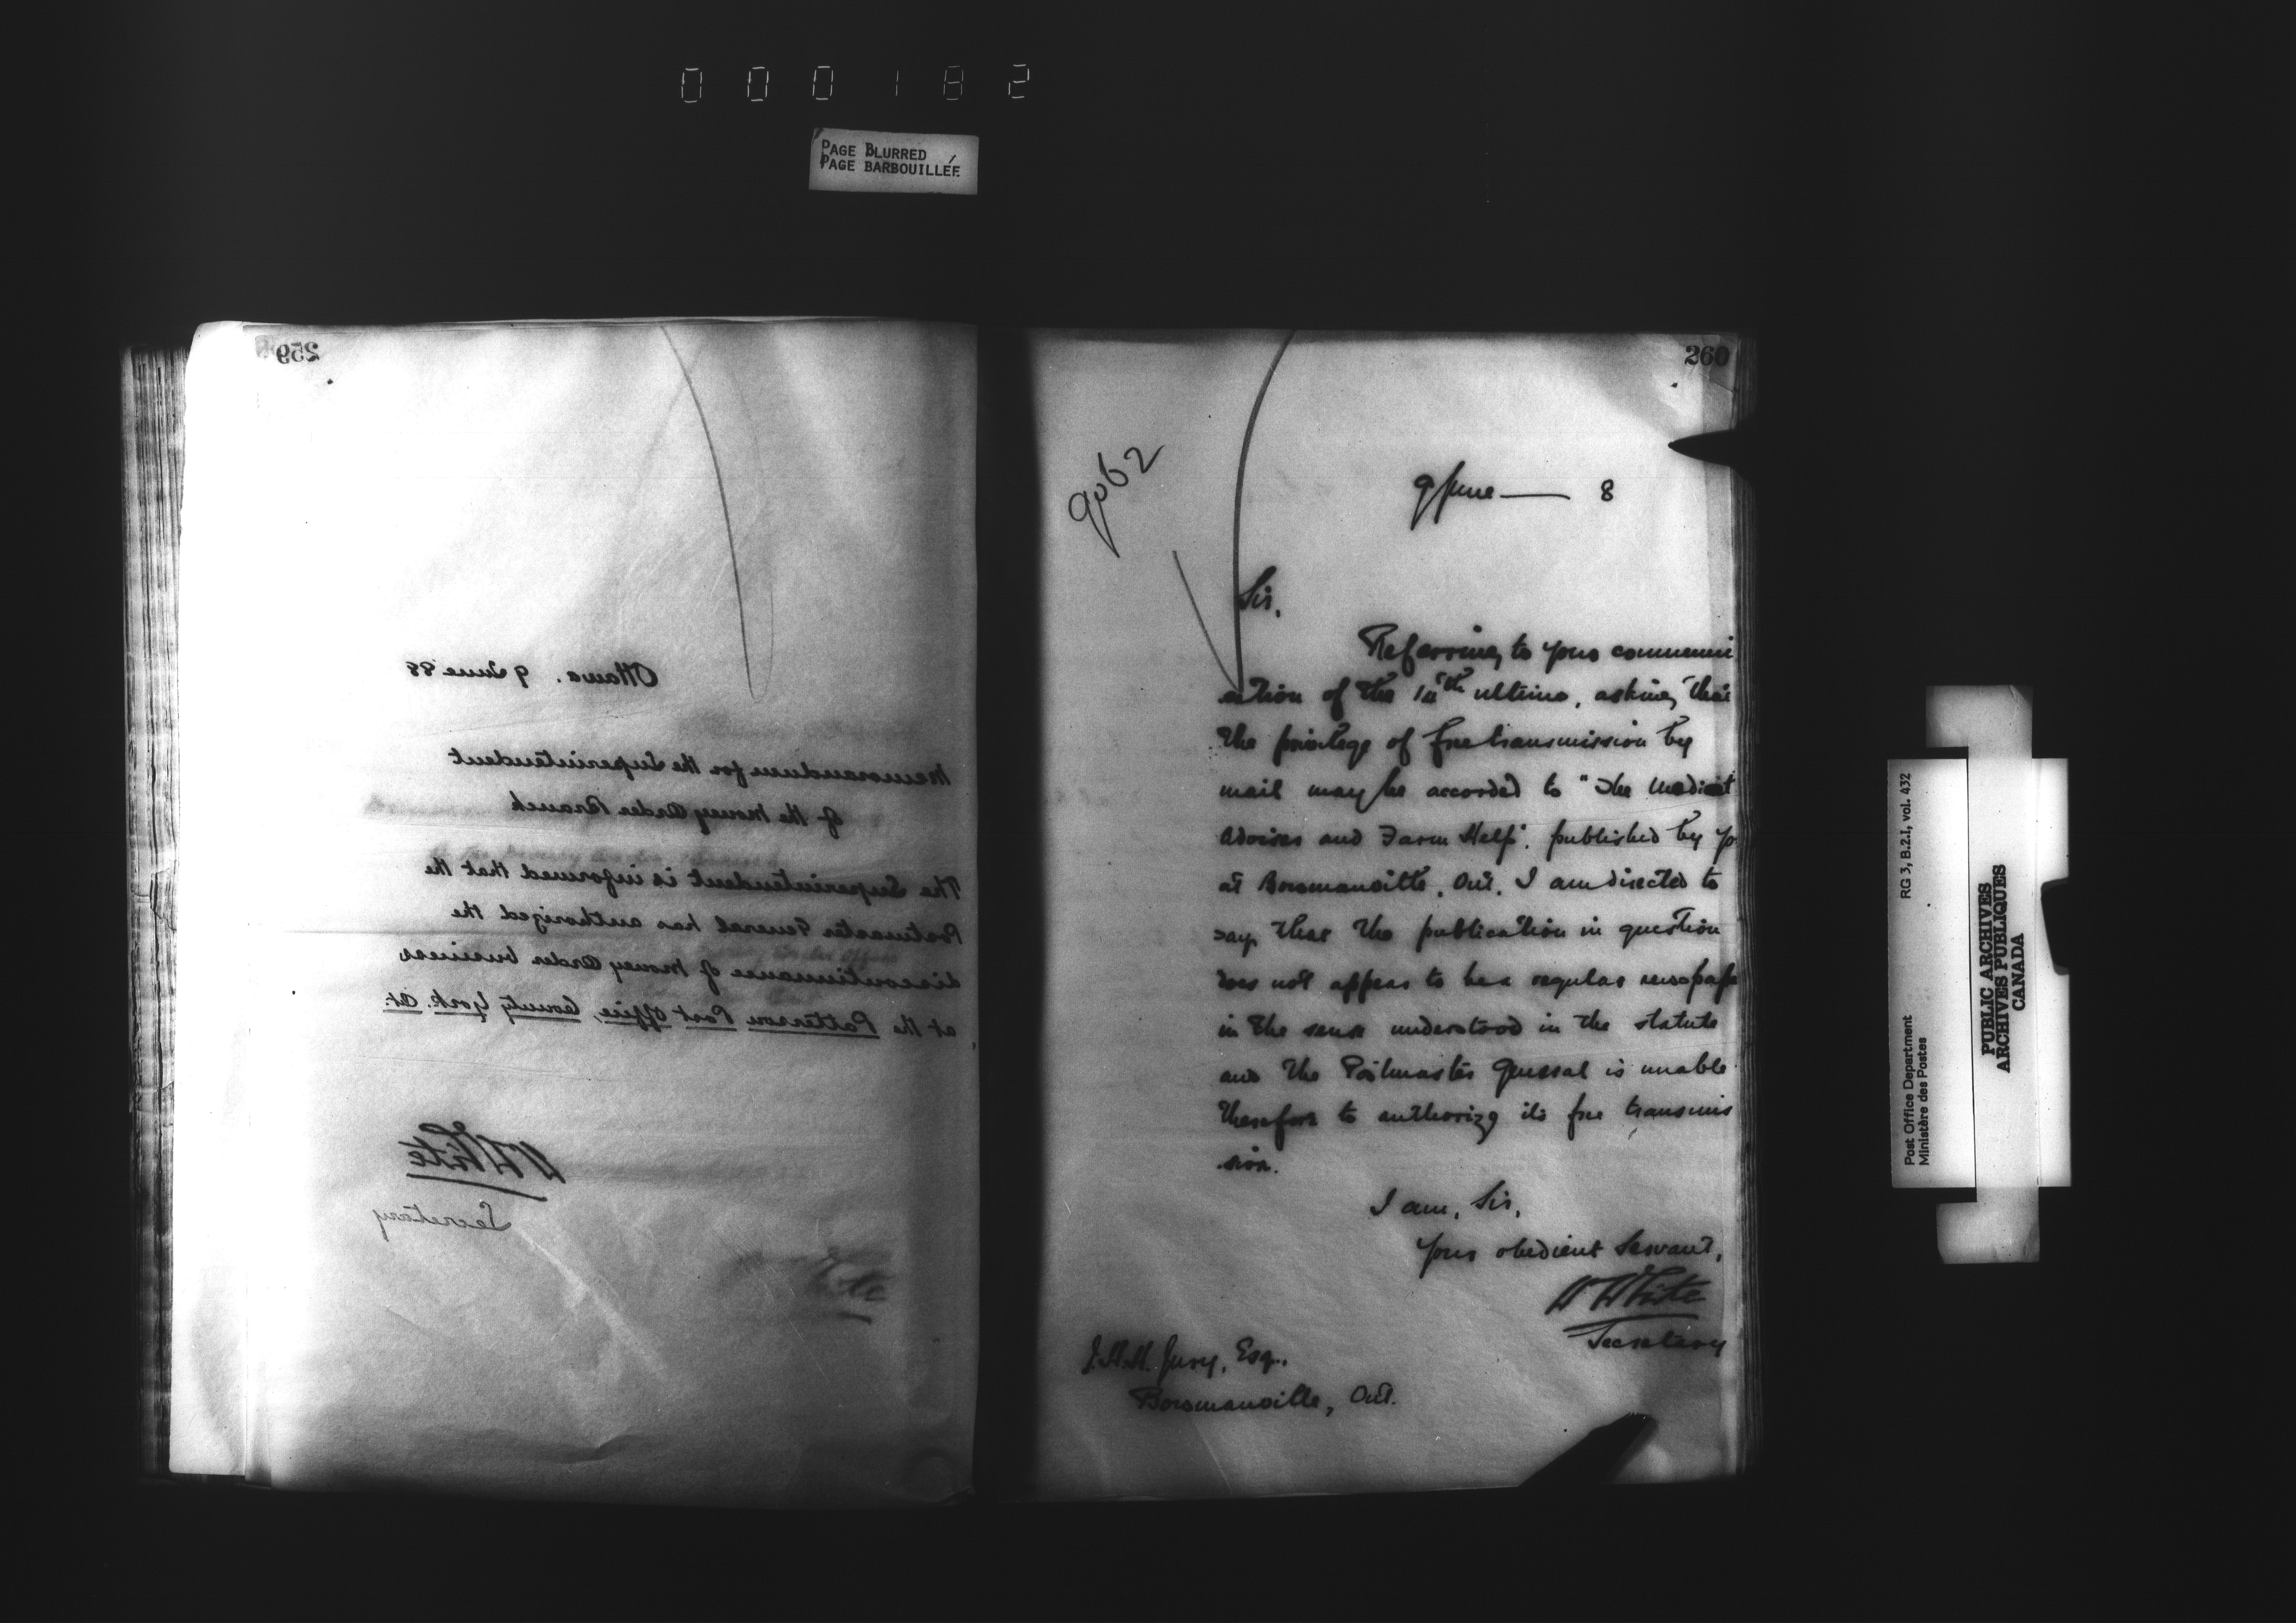 000182
PAGE BLURRED
PAGE BARBOUILLÉE
259
Ottawa. 9 June 88
Memorandum for the Superintendent
of the Money Order Branch
The Superintendent is informed that the
Postmaster General has authorized the
discontinuance of Money Order business
at the Patterson Post Office, County York. Ot.
W White
Secretary
260
9062
9 June — 8
Sir,
Referring to your communi
cation of the ultimo, asking that
the privilege of free transmission by
mail may be accorded to "The Medical
Adviser and Farm Help", published by yo
at Bowmanville, Ont. I am directed to
say that the publication in question
does not appear to be a regular newspape
in the sense understood in the statute
and the Postmaster General is unable
therefore to authorize its free transmis
sion.
I am, Sir,
Your obedient Servant,
W White
Secretary
J.H.H. Jury, Esq.,
Bowmanville, Ont.
Post Office Department RG 3, B.2.I, vol. 432
Ministère des Postes
PUBLIC ARCHIVES
ARCHIVES PUBLIQUES
CANADA